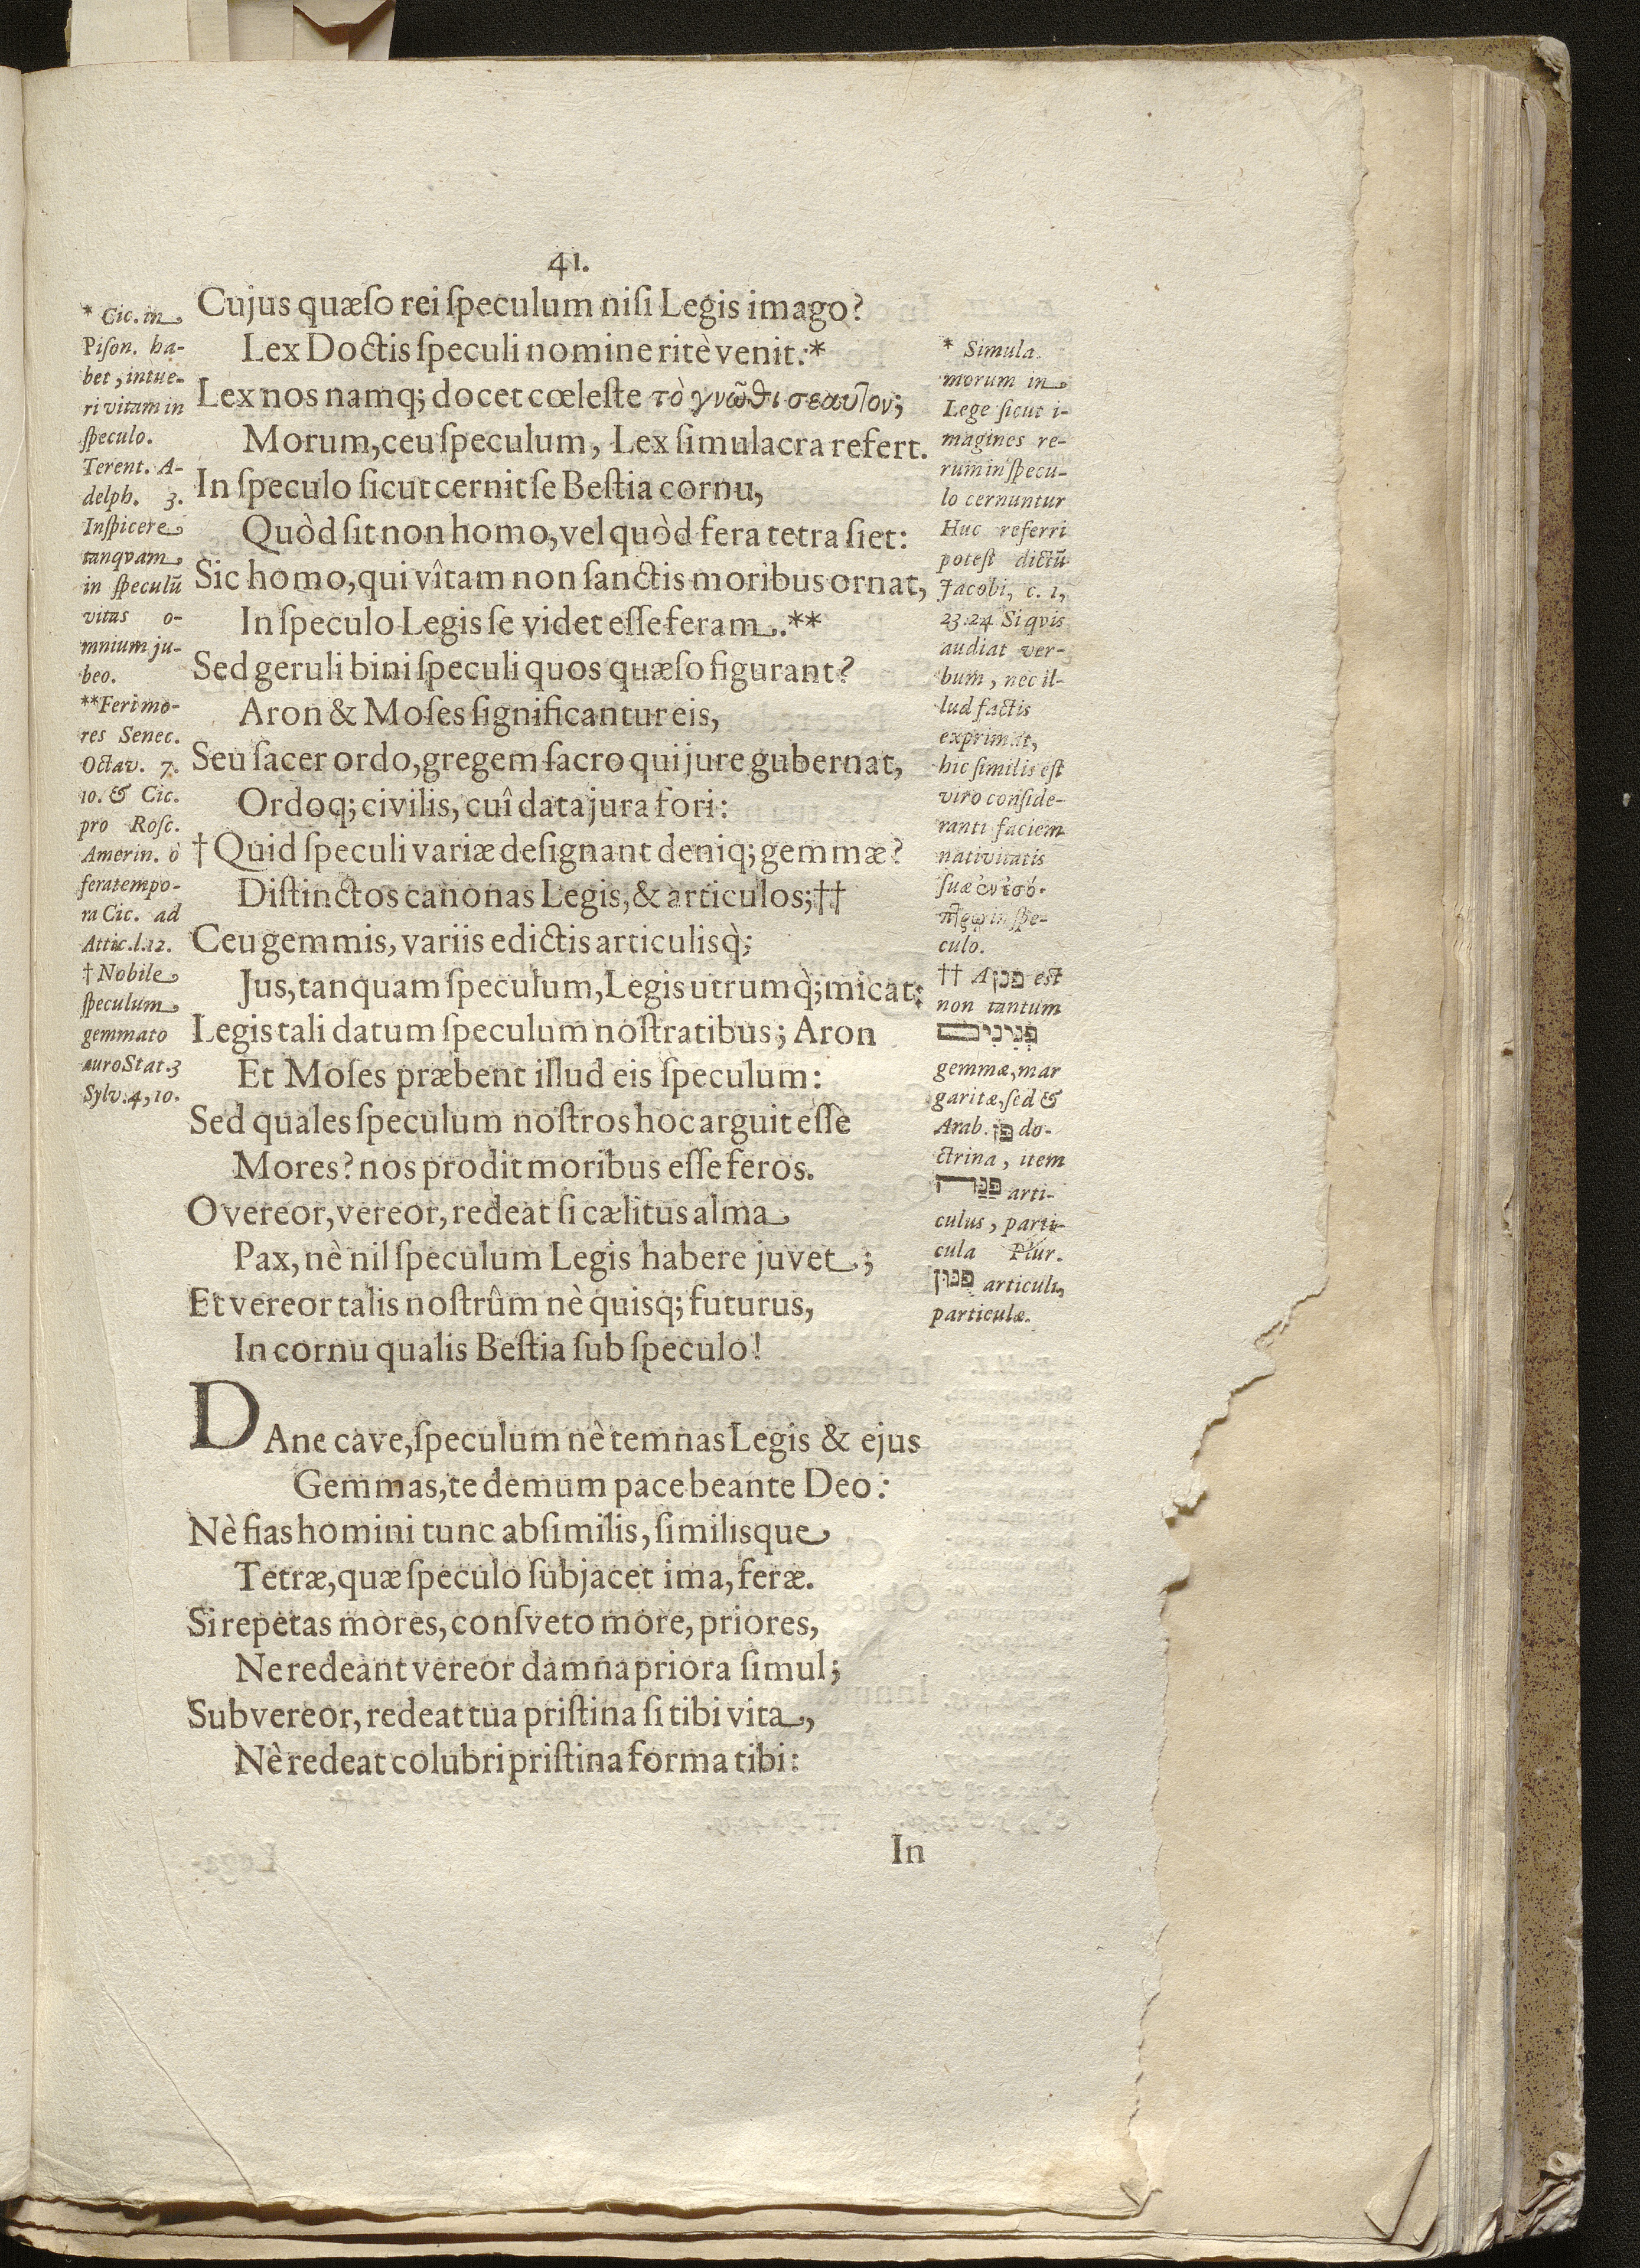 41.
Cujus quæſo rei ſpeculum niſi Legis imago?
Lex Doctis ſpeculi nomine ritè venit.*
Lex nos namq; docet cœleſte τὸ γνῶϑι σεαυτον;
Morum, ceu ſpeculum, Lex ſimulacra refert.
In ſpeculo ſicut cernit ſe Beſtia cornu,
Quòd ſit non homo, vel quòd fera tetra ſiet:
Sic homo, qui vîtam non ſanctis moribus ornat,
In ſpeculo Legis ſe videt eſſe feram.**
Sed geruli bini ſpeculi quos quæſo figurant?
Aron & Moſes ſignificantur eis,
Seu ſacer ordo, gregem ſacro qui jure gubernat,
Ordoq; civilis, cuî data jura fori:
† Quid ſpeculi variæ deſignant deniq; gemmæ?
Diſtinctos canonas Legis, & articulos;††
Ceu gemmis, variis edictis articulisq̀;
Jus, tanquam ſpeculum, Legis utrumq̀; micat:
Legis tali datum ſpeculum noſtratibus; Aron
Et Moſes præbent illud eis ſpeculum:
Sed quales ſpeculum noſtros hoc arguit eſſe
Mores? nos prodit moribus eſſe feros.
O vereor, vereor, redeat ſi cælitus alma
Pax, nè nil ſpeculum Legis habere juvet;
Et vereor talis noſtrûm nè quisq; futurus,
In cornu qualis Beſtia ſub ſpeculo!
DAne cave, ſpeculum nè temnas Legis & ejus
Gemmas, te demum pace beante Deo:
Nè fias homini tunc abſimilis, ſimilisque
Tetræ, quæ ſpeculo ſubjacet ima, feræ.
Si repetas mores, conſveto more, priores,
Ne redeant vereor damna priora ſimul;
Subvereor, redeat tua priſtina ſi tibi vita,
Nè redeat colubri priſtina forma tibi:
In
* Cic. in
Piſon. ha-
bet, intue-
ri vitam in
ſpeculo.
Terent. A-
delph. 3.
Inſpicere
tanqvam
in ſpeculũ
vitas o-
mnium ju-
beo.
**Feri mo-
res Senec.
Octav. 7.
10. & Cic.
pro Roſc.
Amerin. ò
fera tempo-
ra Cic. ad
Attic. l. 12.
† Nobile
ſpeculum
gemmato
auro Stat. 3
Sylv. 4, 10.
* Simula.
morum in
Lege ſicut i-
magines re-
rum in ſpecu-
lo cernuntur
Huc referri
poteſt dictũ
Jacobi, c. 1,
23. 24 Si qvis
audiat ver-
bum, nec il-
lud factis
exprimat,
hic ſimilis eſt
viro conſide-
ranti faciem
nativitatis
ſuæ ἐν ἐσό-
πτρῳ in ſpe-
culo.
†† A פנן eſt
non tantum
פְּנִינִים
gemmæ, mar
garitæ, ſed &
Arab. פן do-
ctrina, item
פַנָּה arti-
culus, parti-
cula Plur.
פַנּוּן articuli,
particulæ.